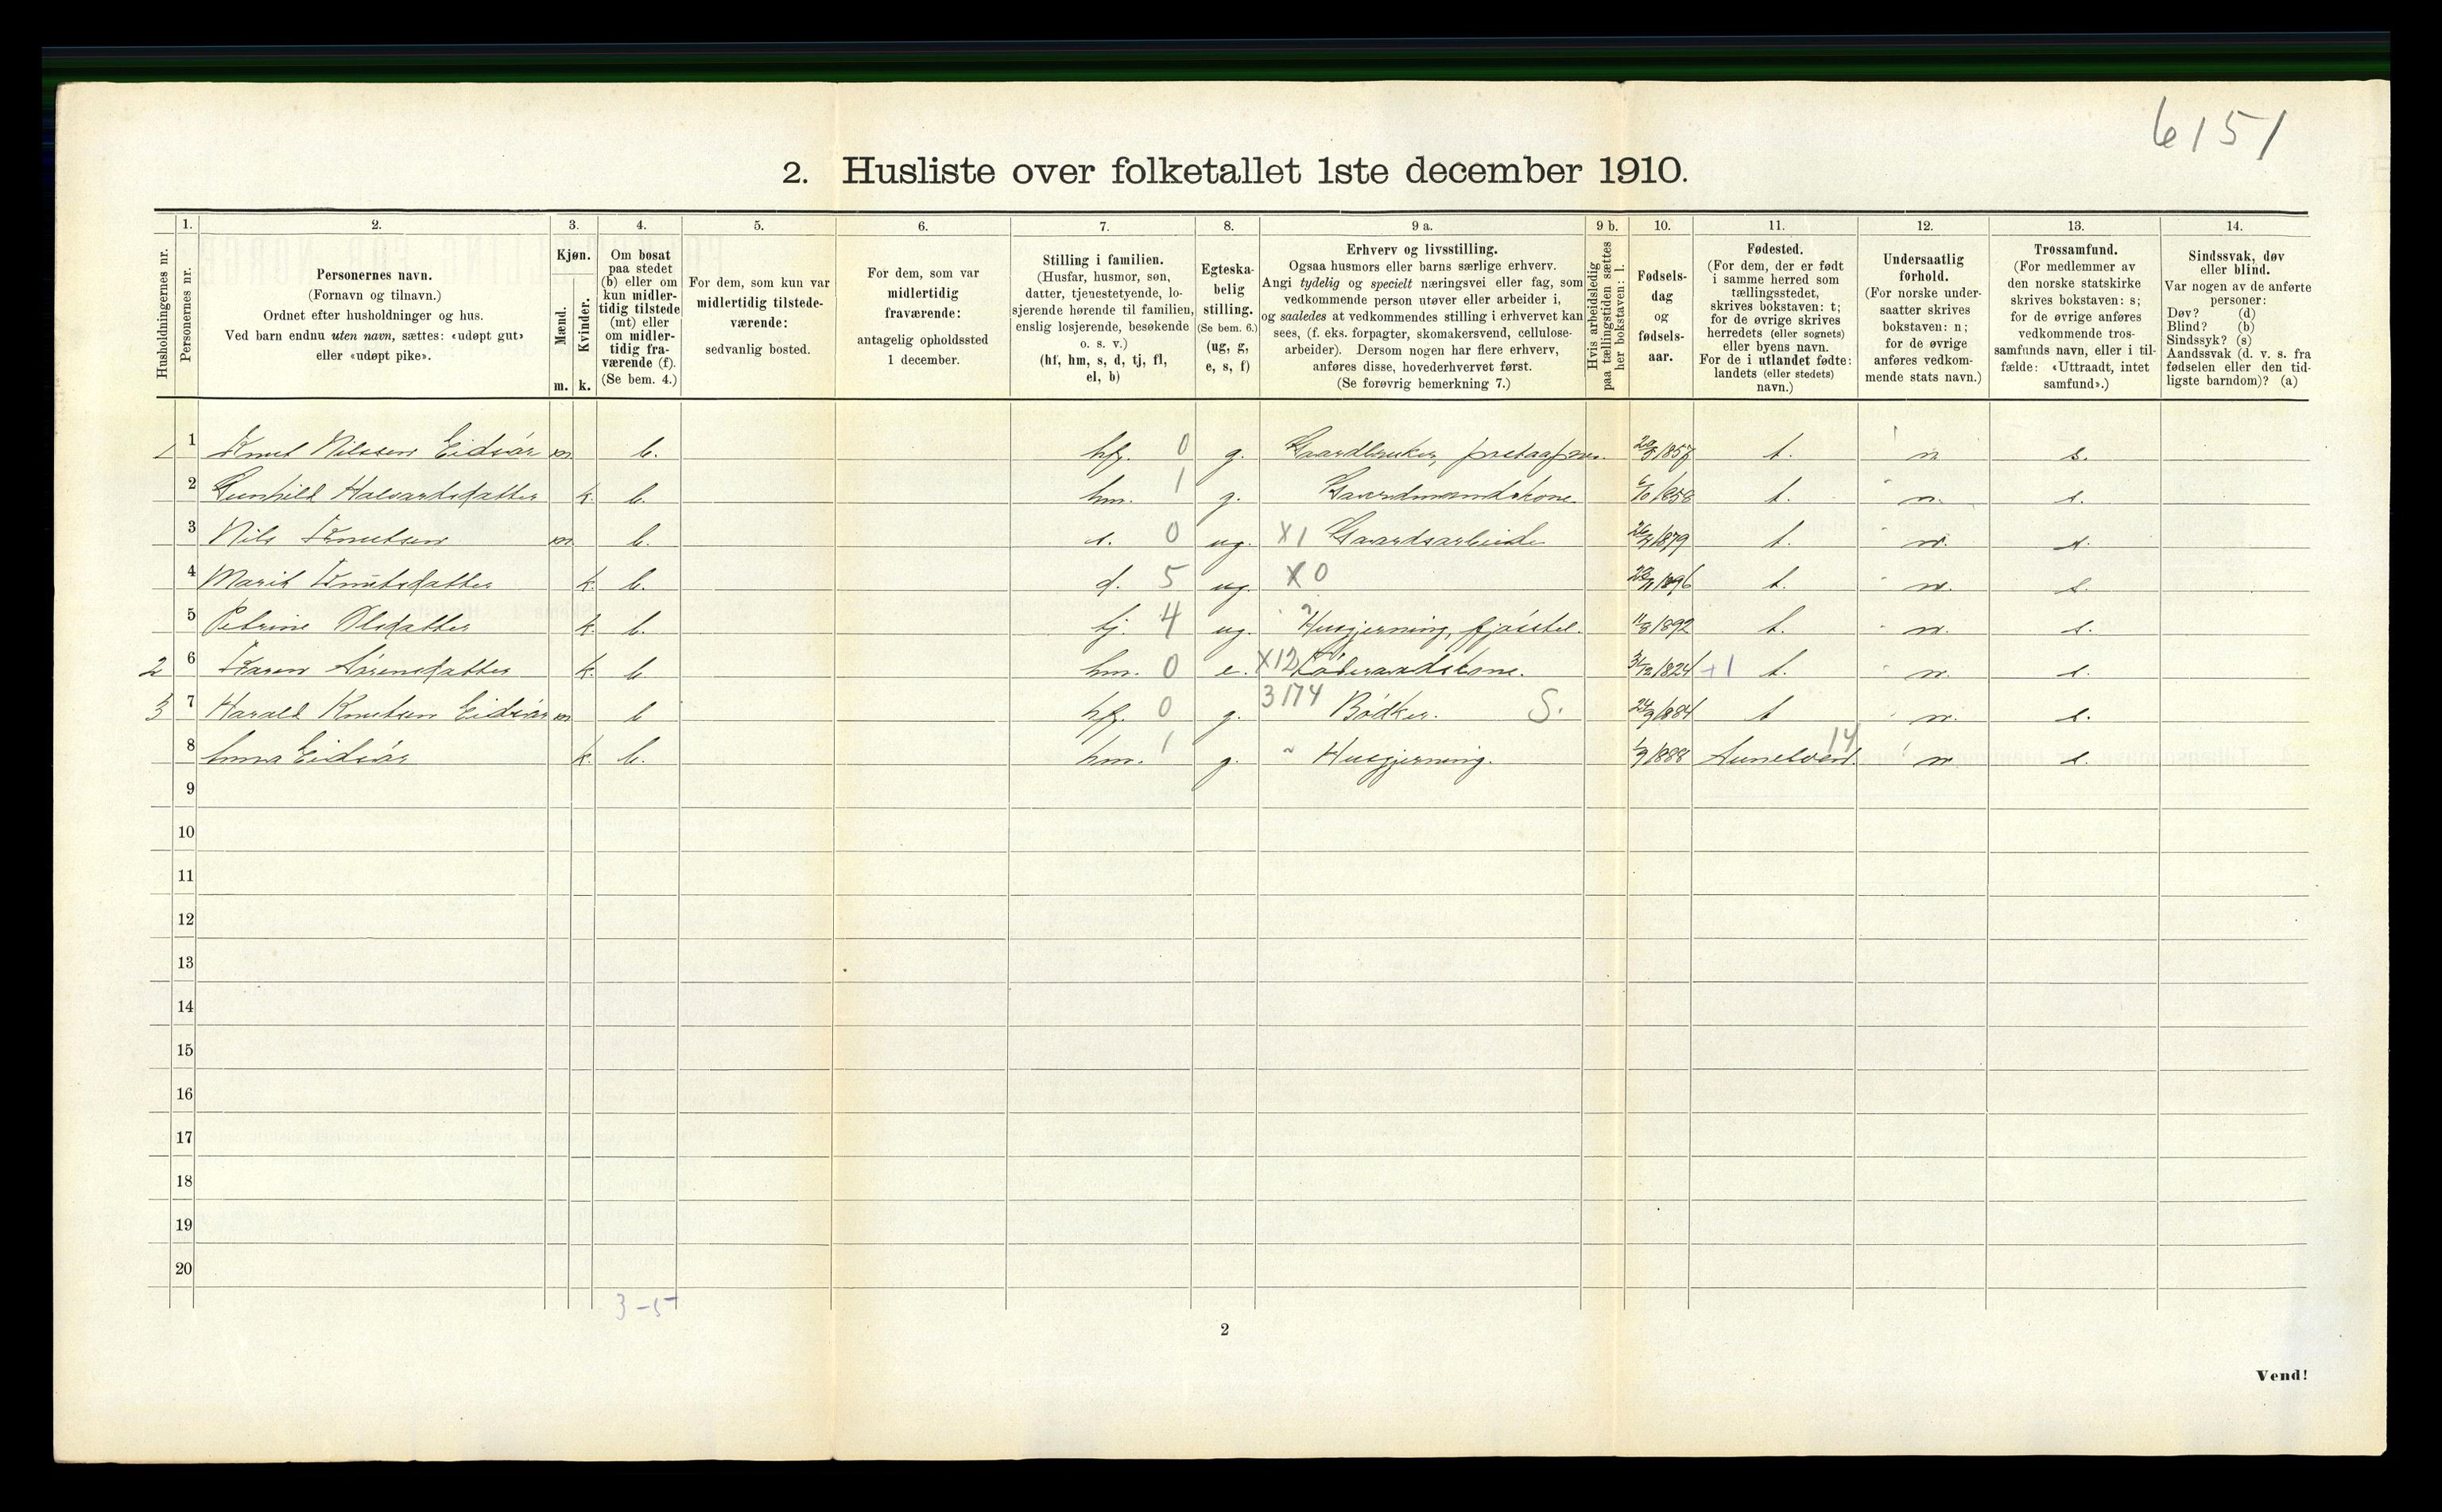 6151
2. Husliste over folketallet 1ste december 1910.
Husholdningernes nr.
1.
Personernes nr.
2.
Personernes navn.
(Fornavn og tilnavn.)
Ordnet efter husholdninger og hus.
Ved barn endnu uten navn, sættes: «udøpt gut»
eller «udøpt pike».
3.
Kjøn.
Mænd.
Kvinder.
m. k.
4.
Om bosat
paa stedet
(b) eller om
kun midler-
tidig tilstede
(mt) eller
om midler-
tidig fra-
værende (f).
(Se bem. 4.)
5.
For dem, som kun var
midlertidig tilstede-
værende:
sedvanlig bosted.
6.
For dem, som var
midlertidig
fraværende:
antagelig opholdssted
1 december.
7.
Stilling i familien.
(Husfar, husmor, søn,
datter, tjenestetyende, lo-
sjerende hørende til familien,
enslig losjerende, besøkende
o. s. v.)
(hf, hm, s, d, tj, fl,
el, b)
8.
Egteska-
belig
stilling.
(Se bem. 6.)
(ug, g,
e, s, f)
9 a.
Erhverv og livsstilling.
Ogsaa husmors eller barns særlige erhverv.
Angi tydelig og specielt næringsvei eller fag, som
vedkommende person utøver eller arbeider i,
og saaledes at vedkommendes stilling i erhvervet kan
sees, (f. eks. forpagter, skomakersvend, cellulose-
arbeider). Dersom nogen har flere erhverv,
anføres disse, hovederhvervet først.
(Se forøvrig bemerkning 7.)
9 b.
Hvis arbeidsledig
paa tællingstiden sættes
her bokstaven: l.
10.
Fødsels-
dag
og
fødsels-
aar.
11.
Fødested.
(For dem, der er født
i samme herred som
tællingsstedet,
skrives bokstaven: t;
for de øvrige skrives
herredets (eller sognets)
eller byens navn.
For de i utlandet fødte:
landets (eller stedets)
navn.)
12.
Undersaatlig
forhold.
(For norske under-
saatter skrives
bokstaven: n;
for de øvrige
anføres vedkom-
mende stats navn.)
13.
Trossamfund.
(For medlemmer av
den norske statskirke
skrives bokstaven: s;
for de øvrige anføres
vedkommende tros-
samfunds navn, eller i til-
fælde: «Uttraadt, intet
samfund».)
14.
Sindssvak, døv
eller blind.
Var nogen av de anførte
personer:
Døv? (d)
Blind? (b)
Sindssyk? (s)
Aandssvak (d. v. s. fra
fødselen eller den tid-
ligste barndom)? (a)
1 1 Knut Nilsen Eidsaa m b. hf. 0 g. Gaardbruker, 1857 t. n s.
2 Gunhild Halvardsdatter k. b. hm. 1 g. Gaardmandskone 6/10 1858 t. n. s.
3 Nils Knutsen m b. s. 0 ug. X1 Gaardsarbeide 1879 t. n. s.
4 Marit Knutsdatter k. b. d. 5 ug. X0 1896 t. n. s.
5 Petrine Olsdatter k. b. tj. 4 ug. Husgjerning, fjøsstel. 11/8 1892 t. n. s.
2 6 Karen k. b. hm. 0 e. X12 31/12 1824 +1 t. n. s.
3 7 Harald Knutsen m b hf. 0 g. 3174 Bødker. S. 24/9 1884 t n. s.
8 Anna k. b. hm. 1 g. Husgjerning. 1888 14 n s.
9
10
11
12
13
14
15
16
17
18
19
20
3 – 5
2
Vend!